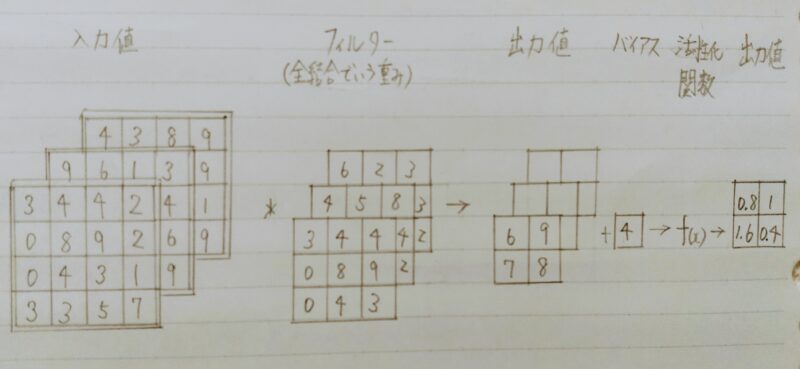 入力値 フィルター 出力値 バイアス 活性化 出力値
(全結合でいう重み) 関数
4 3 8 9
9 6 1 3 9 6 2 3
3 4 4 2 4 1 4 5 8 3 0.8 1
* → + 4 → f(x) →
0 8 9 2 6 9 3 4 4 4 2 6 9 1.6 0.4
0 4 3 1 9 0 8 9 2 7 8
3 3 5 7 0 4 3